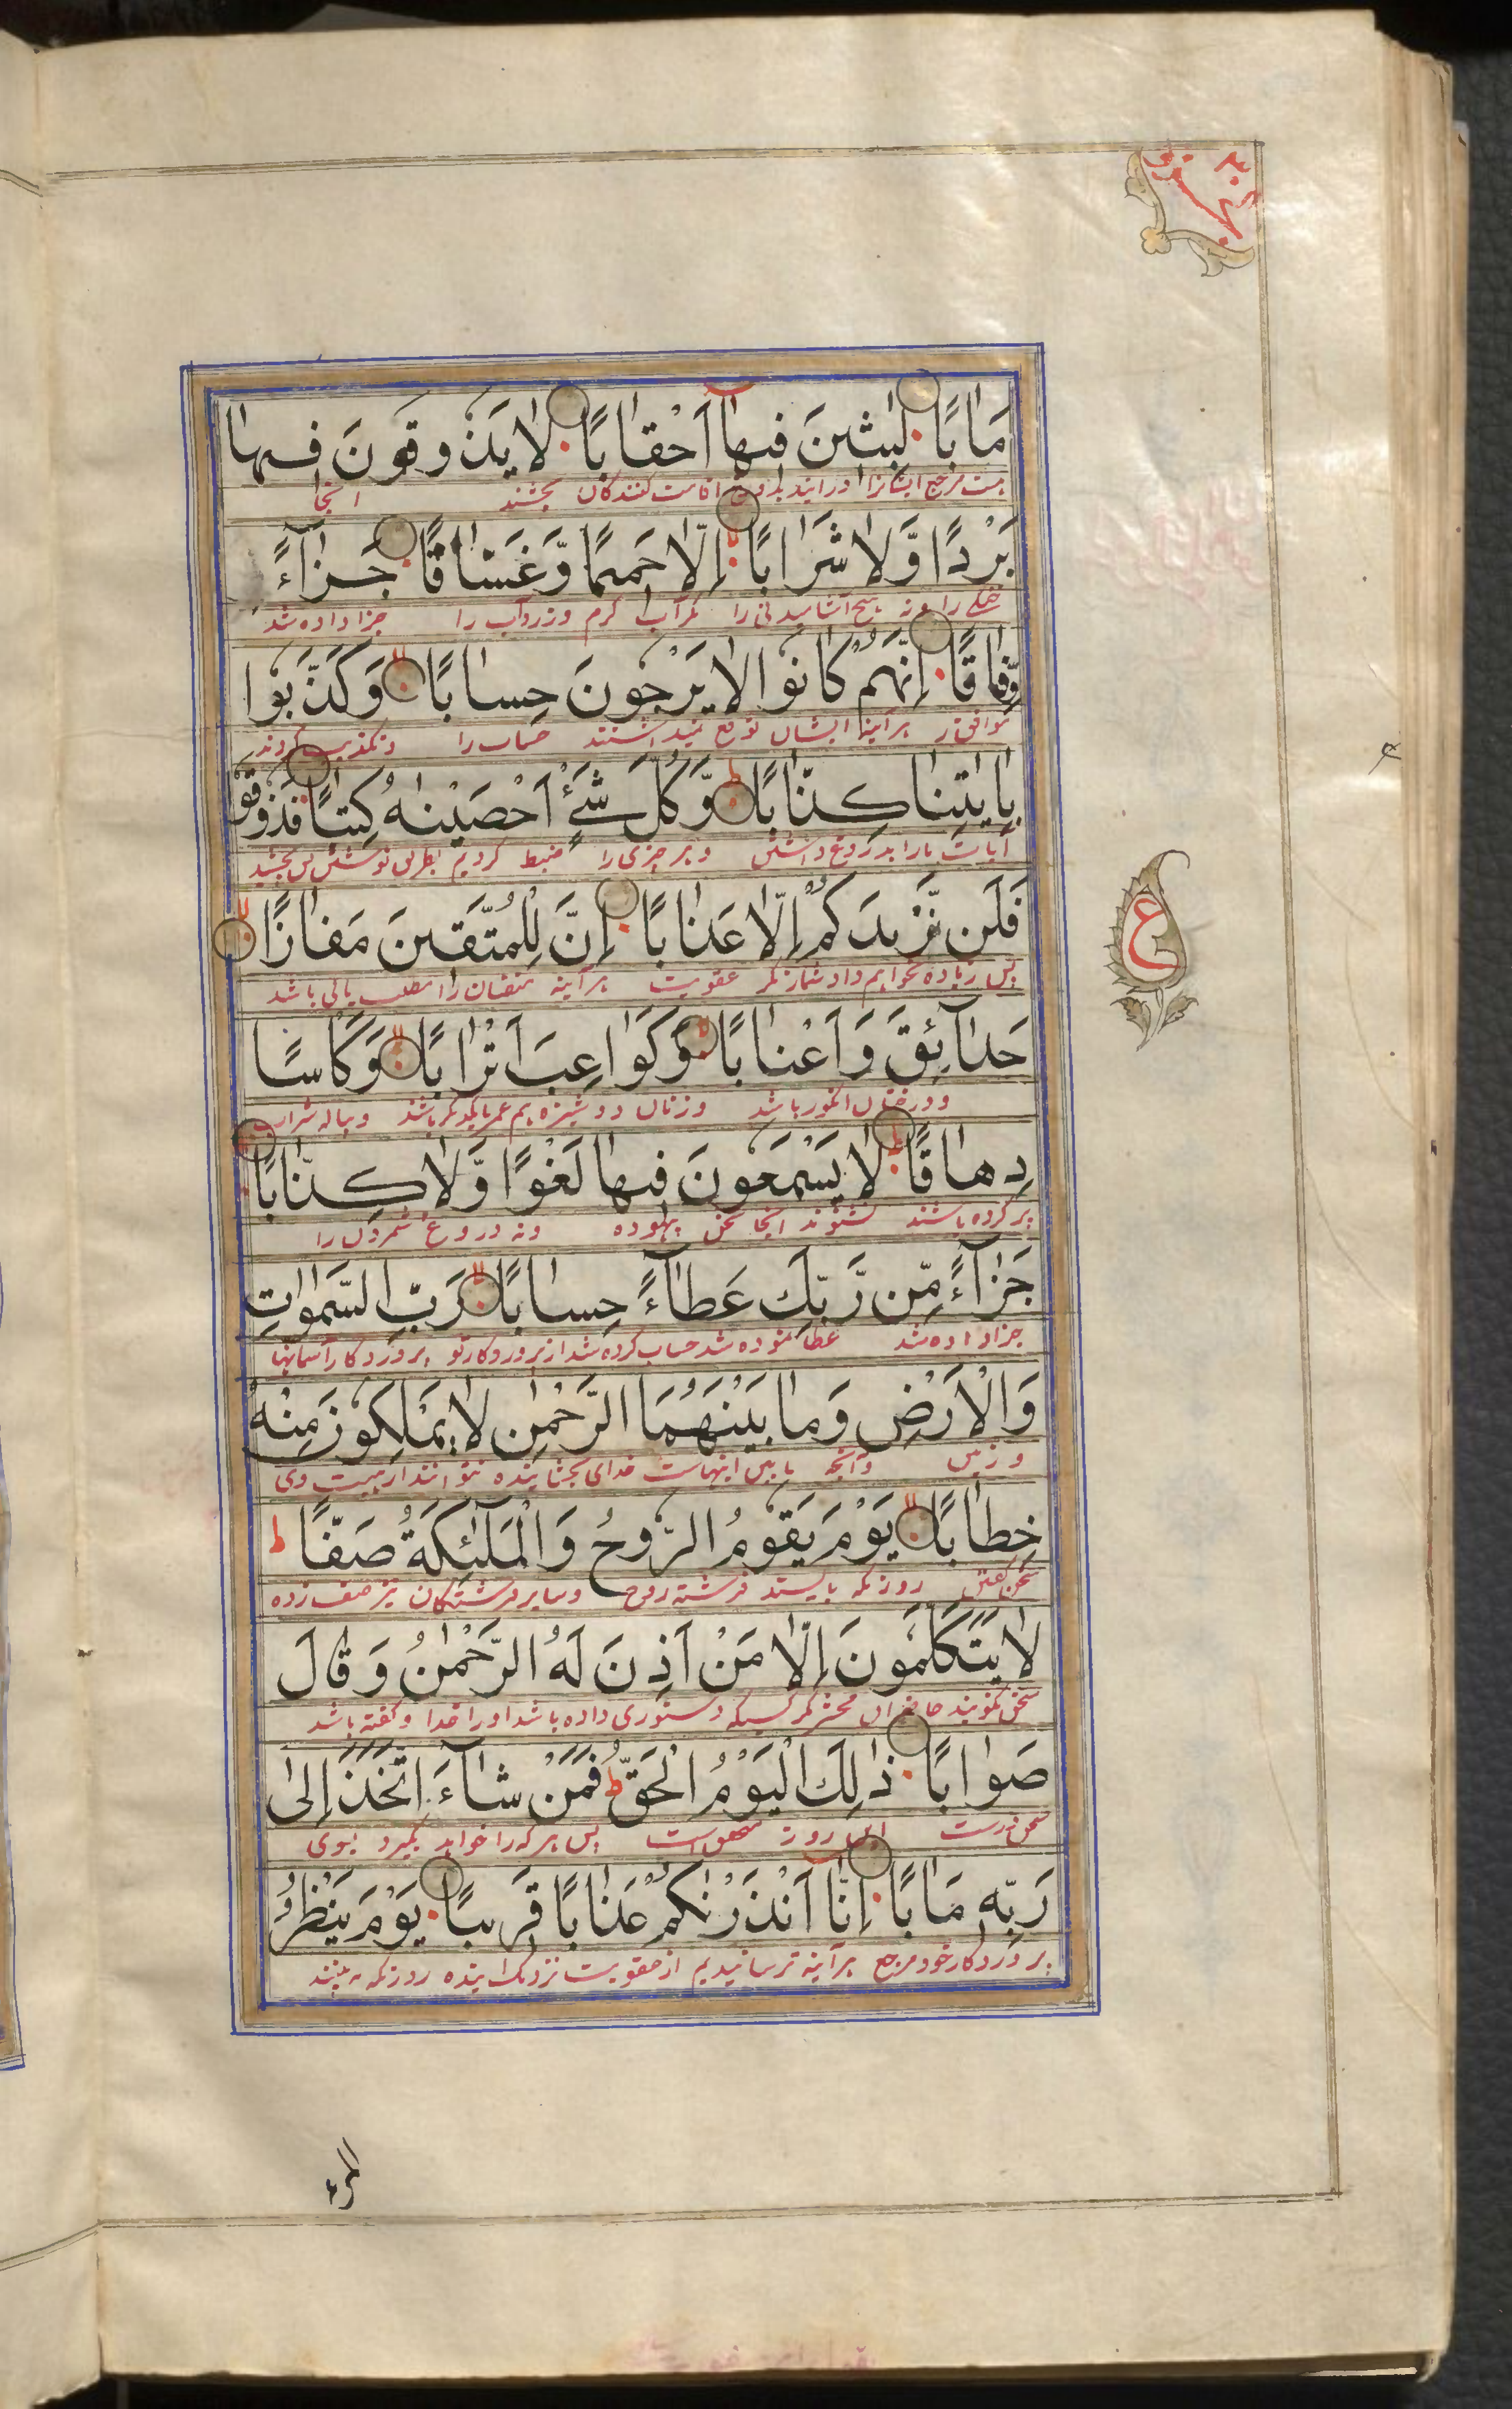 مَاٰبًا لّٰبِثينَ فيهاۤ اَحْقابًا لا يَذوقونَ فيها
هست مرجع ایشانرا در ایند بدوزخ اقامت کنندگان نچشند انجا
بَرْدًا وَّلا شَرابًا اِلّا حَميمًا وَّغَسّاقًا جَزآءً
خنکی را و نه هیچ آشامیدنی را مگر آب گرم و زردآب را جزا داده شد
وِّفاقًا اِنَّهُمْ كانوا لا يَرْجونَ حِسابًا وَكَذَّبوا
موافق هر آینه ایشان توقع نمیداشتند حساب را و تکذیب کردند
بِاٰيٰتِنا كِذّابًا وَكُلَّ شَيْءٍ اَحْصَيْنٰهُ كِتٰبًا فَذوقوا
آیات ما را بدروغ داشتن و هر چیزی را ضبط کردیم بطریق نوشتن پس بچشید
فَلَن نَّزيدَكُمْ اِلّا عَذابًا اِنَّ لِلْمُتَّقينَ مَفازًا
پس زیاده نخواهیم داد شما را مگر عقوبت هر آینه متقیان را مطلب یابی باشد
حَدآئِقَ وَاَعْنابًا وَكَواعِبَ اَتْرابًا وَكَأسًا
و درختان انگور باشد و زنان دوشیزه هم عمر با یکدیگر باشند و پیاله شراب
دِهاقًا لا يَسْمَعونَ فيها لَغْوًا وَّلا كِذّابًا
پر کرده باشند نشنوند آنجا سخن بیهوده و نه دروغ شمردن را
جَزآءً مِّن رَّبِّكَ عَطآءً حِسابًا رَبِّ السَّمٰواتِ
جزا داده شد عطا نموده شد حساب کرده شد از پروردگار تو پروردگار آسمانها
وَالْاَرْضِ وَما بَيْنَهُمَا الرَّحْمٰنِ لا يَمْلِكونَ مِنْهُ
و زمین و آنچه ما بین اینهاست خدای بخشاینده نتوانند از هیبت وی
خِطابًا يَوْمَ يَقومُ الرّوحُ وَالْمَلٰٓئِكَةُ صَفًّا ط
سخن گفتن روزیکه بایستد فرشته روح و سایر فرشتگان نیز صف زده
لا يَتَكَلَّمونَ اِلّا مَنْ اَذِنَ لَهُ الرَّحْمٰنُ وَقالَ
سخن نگویند حاضران محشر مگر کسیکه دستوری داده باشد او را خدا و گفته باشد
صَوابًا ذٰلِكَ الْيَوْمُ الْحَقُّ ط فَمَنْ شآءَ اتَّخَذَ اِلىٰ
سخن درست این روز متحقق است پس هر که را خواهد بگیرد بسوی
رَبِّهٖ مَاٰبًا اِنّا اَنْذَرْنٰكُمْ عَذابًا قَريبًا يَوْمَ يَنْظُرُ
پروردگار خود مرجع هر آینه ترسانیدیم از عقوبت نزدیک آینده روزیکه به بیند
ع
المرء